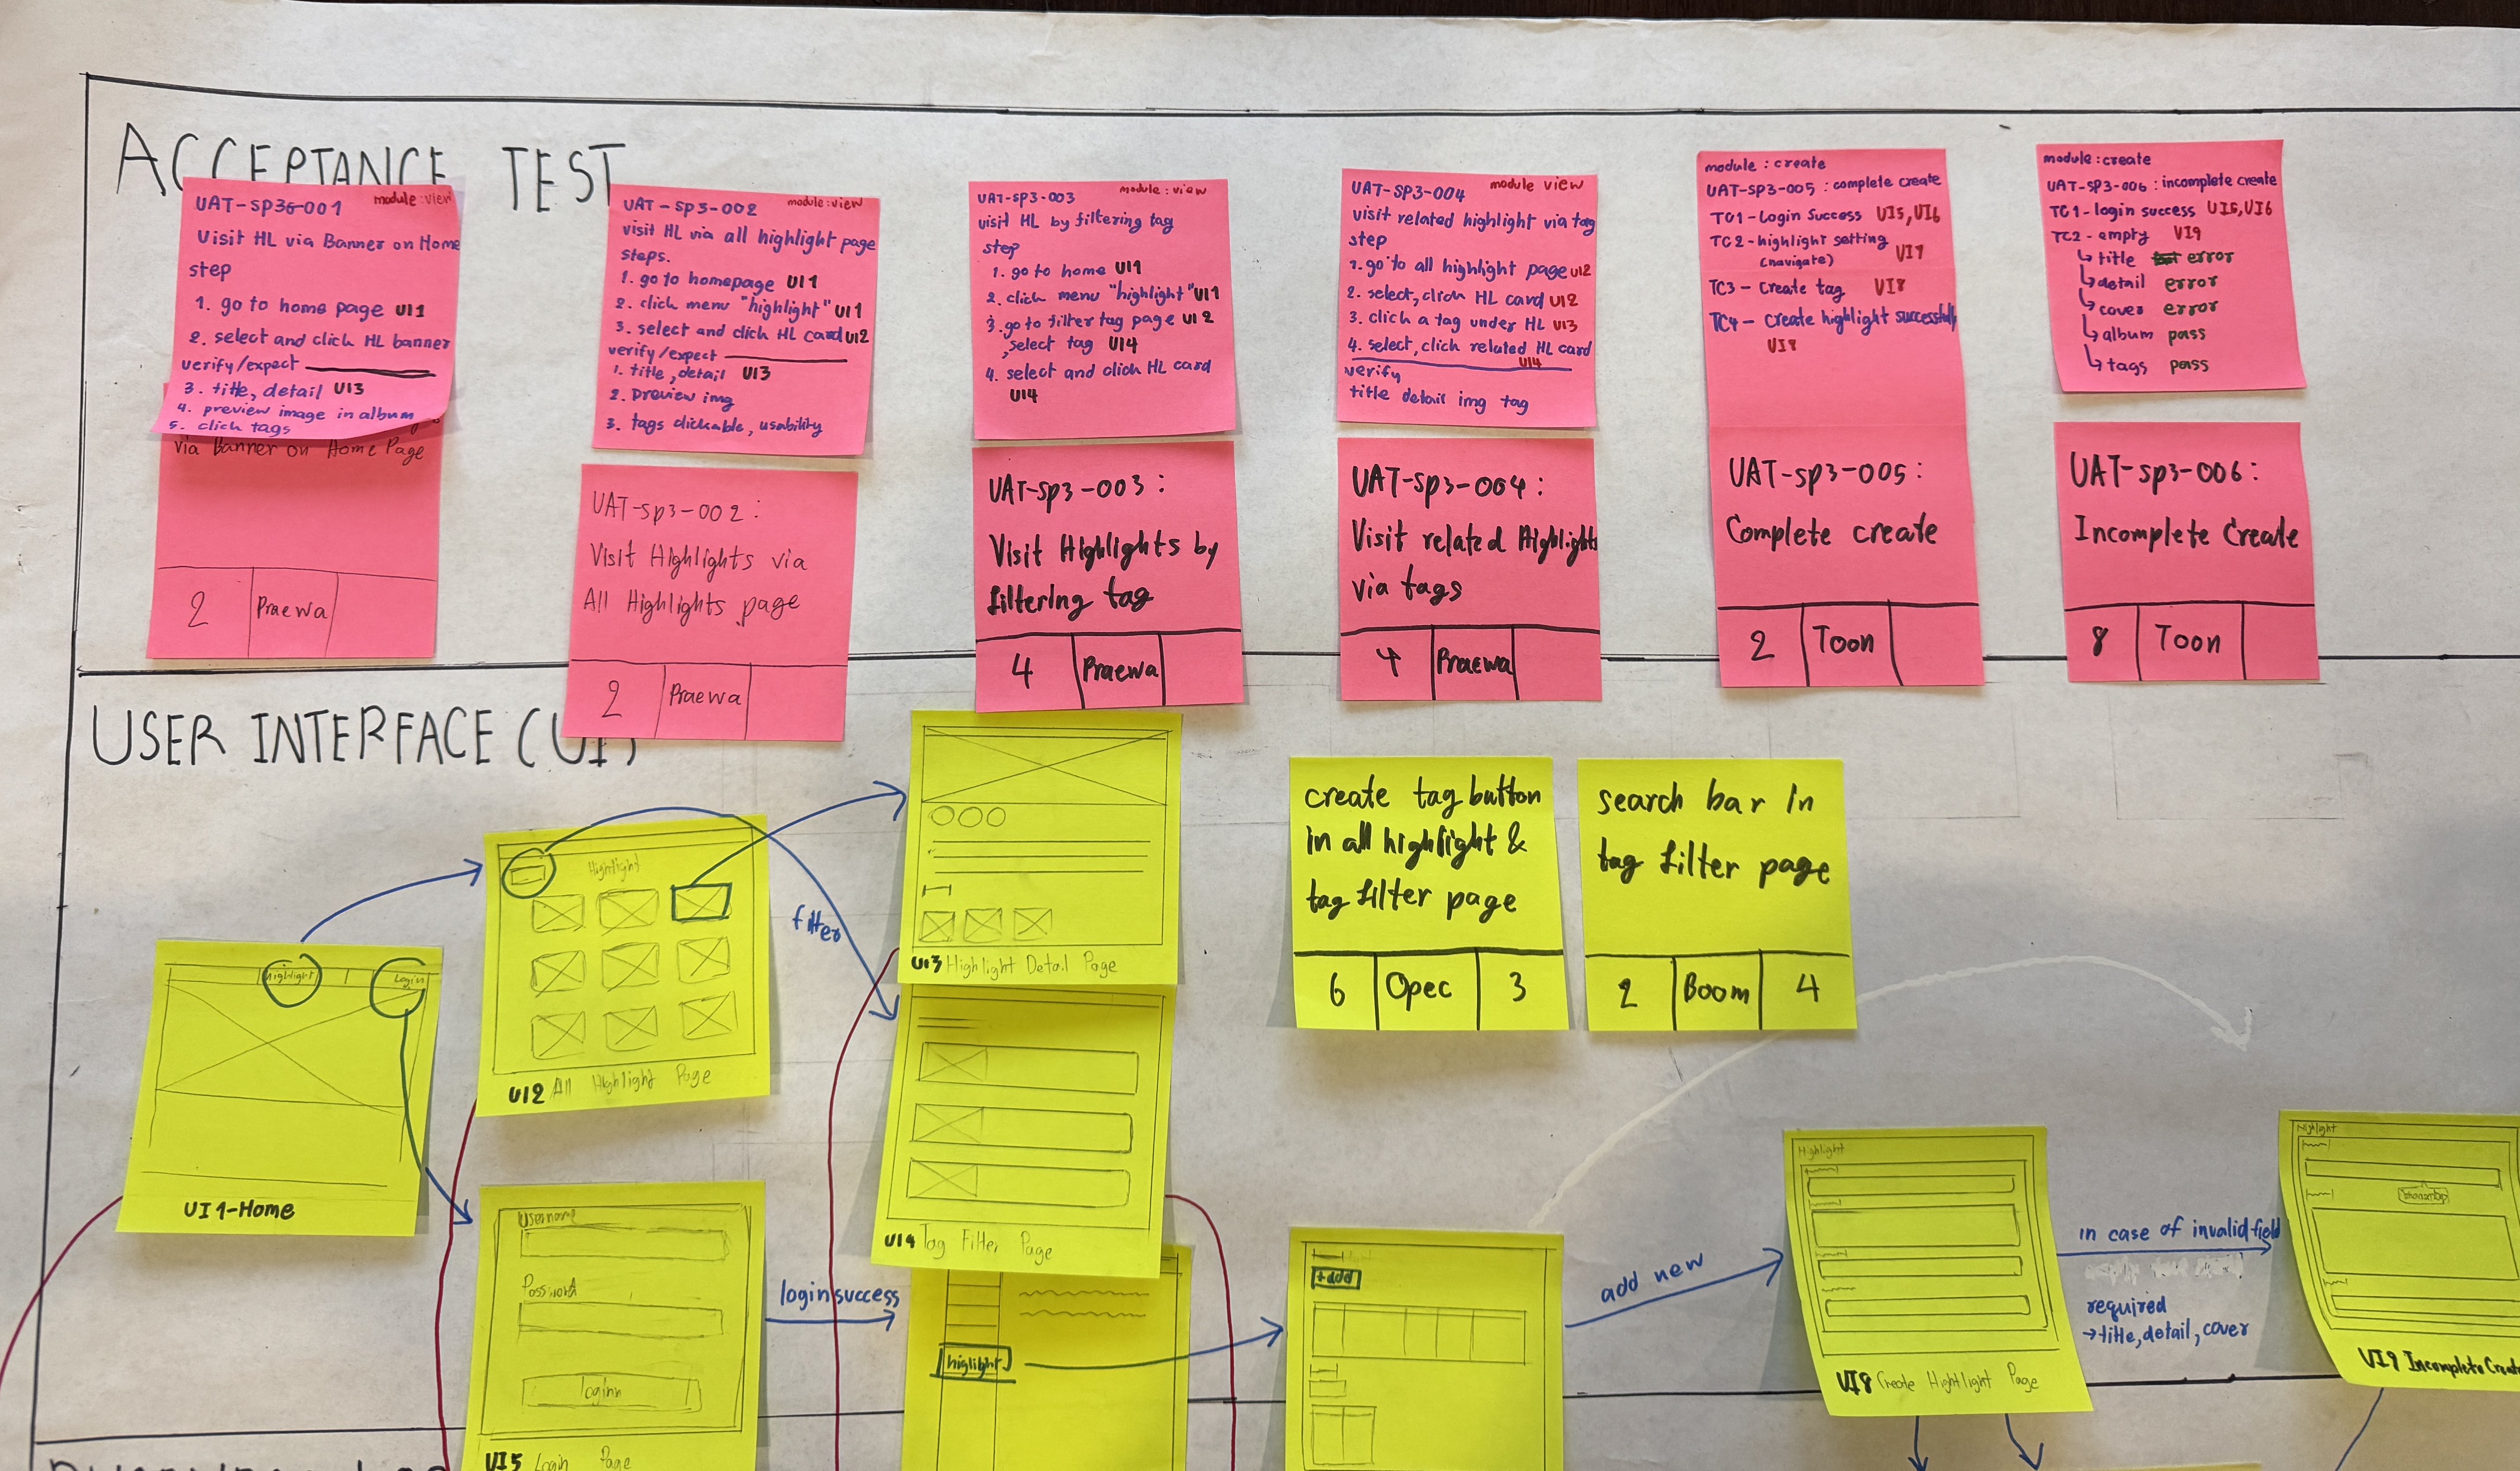 ACCEPTANCE TEST
UAT-SP36-001 module:view
Visit HL via Banner on Home
step
1. go to home page UI1
2. select and click HL banner
verify/expect
3. title, detail UI3
4. preview image in album
5. click tags
via Banner on Home Page
2 Praewa
UAT-SP3-002 module:view
visit HL via all highlight page
steps.
1. go to homepage UI1
2. click menu "highlight" UI1
3. select and click HL card UI2
verify/expect
1. title, detail UI3
2. preview img
3. tags clickable, usability
UAT-sp3-002:
Visit Highlights via
All Highlights page
2 Praewa
UAT-SP3-003 module:view
visit HL by filtering tag
step
1. go to home UI1
2. click menu "highlight" UI1
3. go to filter tag page UI2
, select tag UI4
4. select and click HL card
UI4
UAT-sp3-003:
Visit Highlights by
filtering tag
4 Praewa
UAT-SP3-004 module view
visit related highlight via tag
step
1. go to all highlight page UI2
2. select, click HL card UI2
3. click a tag under HL UI3
4. select, click related HL card
UI4
verify
title detail img tag
UAT-sp3-004:
Visit related Highlights
via tags
4 Praewa
module: create
UAT-SP3-005: complete create
TC1-Login Success UI5,UI6
TC2-highlight setting UI7
(navigate)
TC3- Create tag UI8
TC4- Create highlight successfully
UI8
UAT-sp3-005:
Complete create
2 Toon
module:create
UAT-SP3-006: incomplete create
TC1-login success UI5,UI6
TC2-empty UI9
↳ title error
↳ detail error
↳ cover error
↳ album pass
↳ tags pass
UAT-sp3-006:
Incomplete Create
8 Toon
USER INTERFACE (UI)
Highlight Login
UI1-Home
Highlight
UI2 All Highlight Page
filter
UI3 Highlight Detail Page
UI4 Tag Filter Page
create tag button
in all highlight &
tag filter page
6 Opec 3
search bar in
tag filter page
2 Boom 4
Username
Password
loginn
UI5 Login Page
login success
higlight
+add
add new
Highlight
UI8 Create Hightlight Page
in case of invalid field
required
→title, detail, cover
Highlight
UI9 Incomplete Create